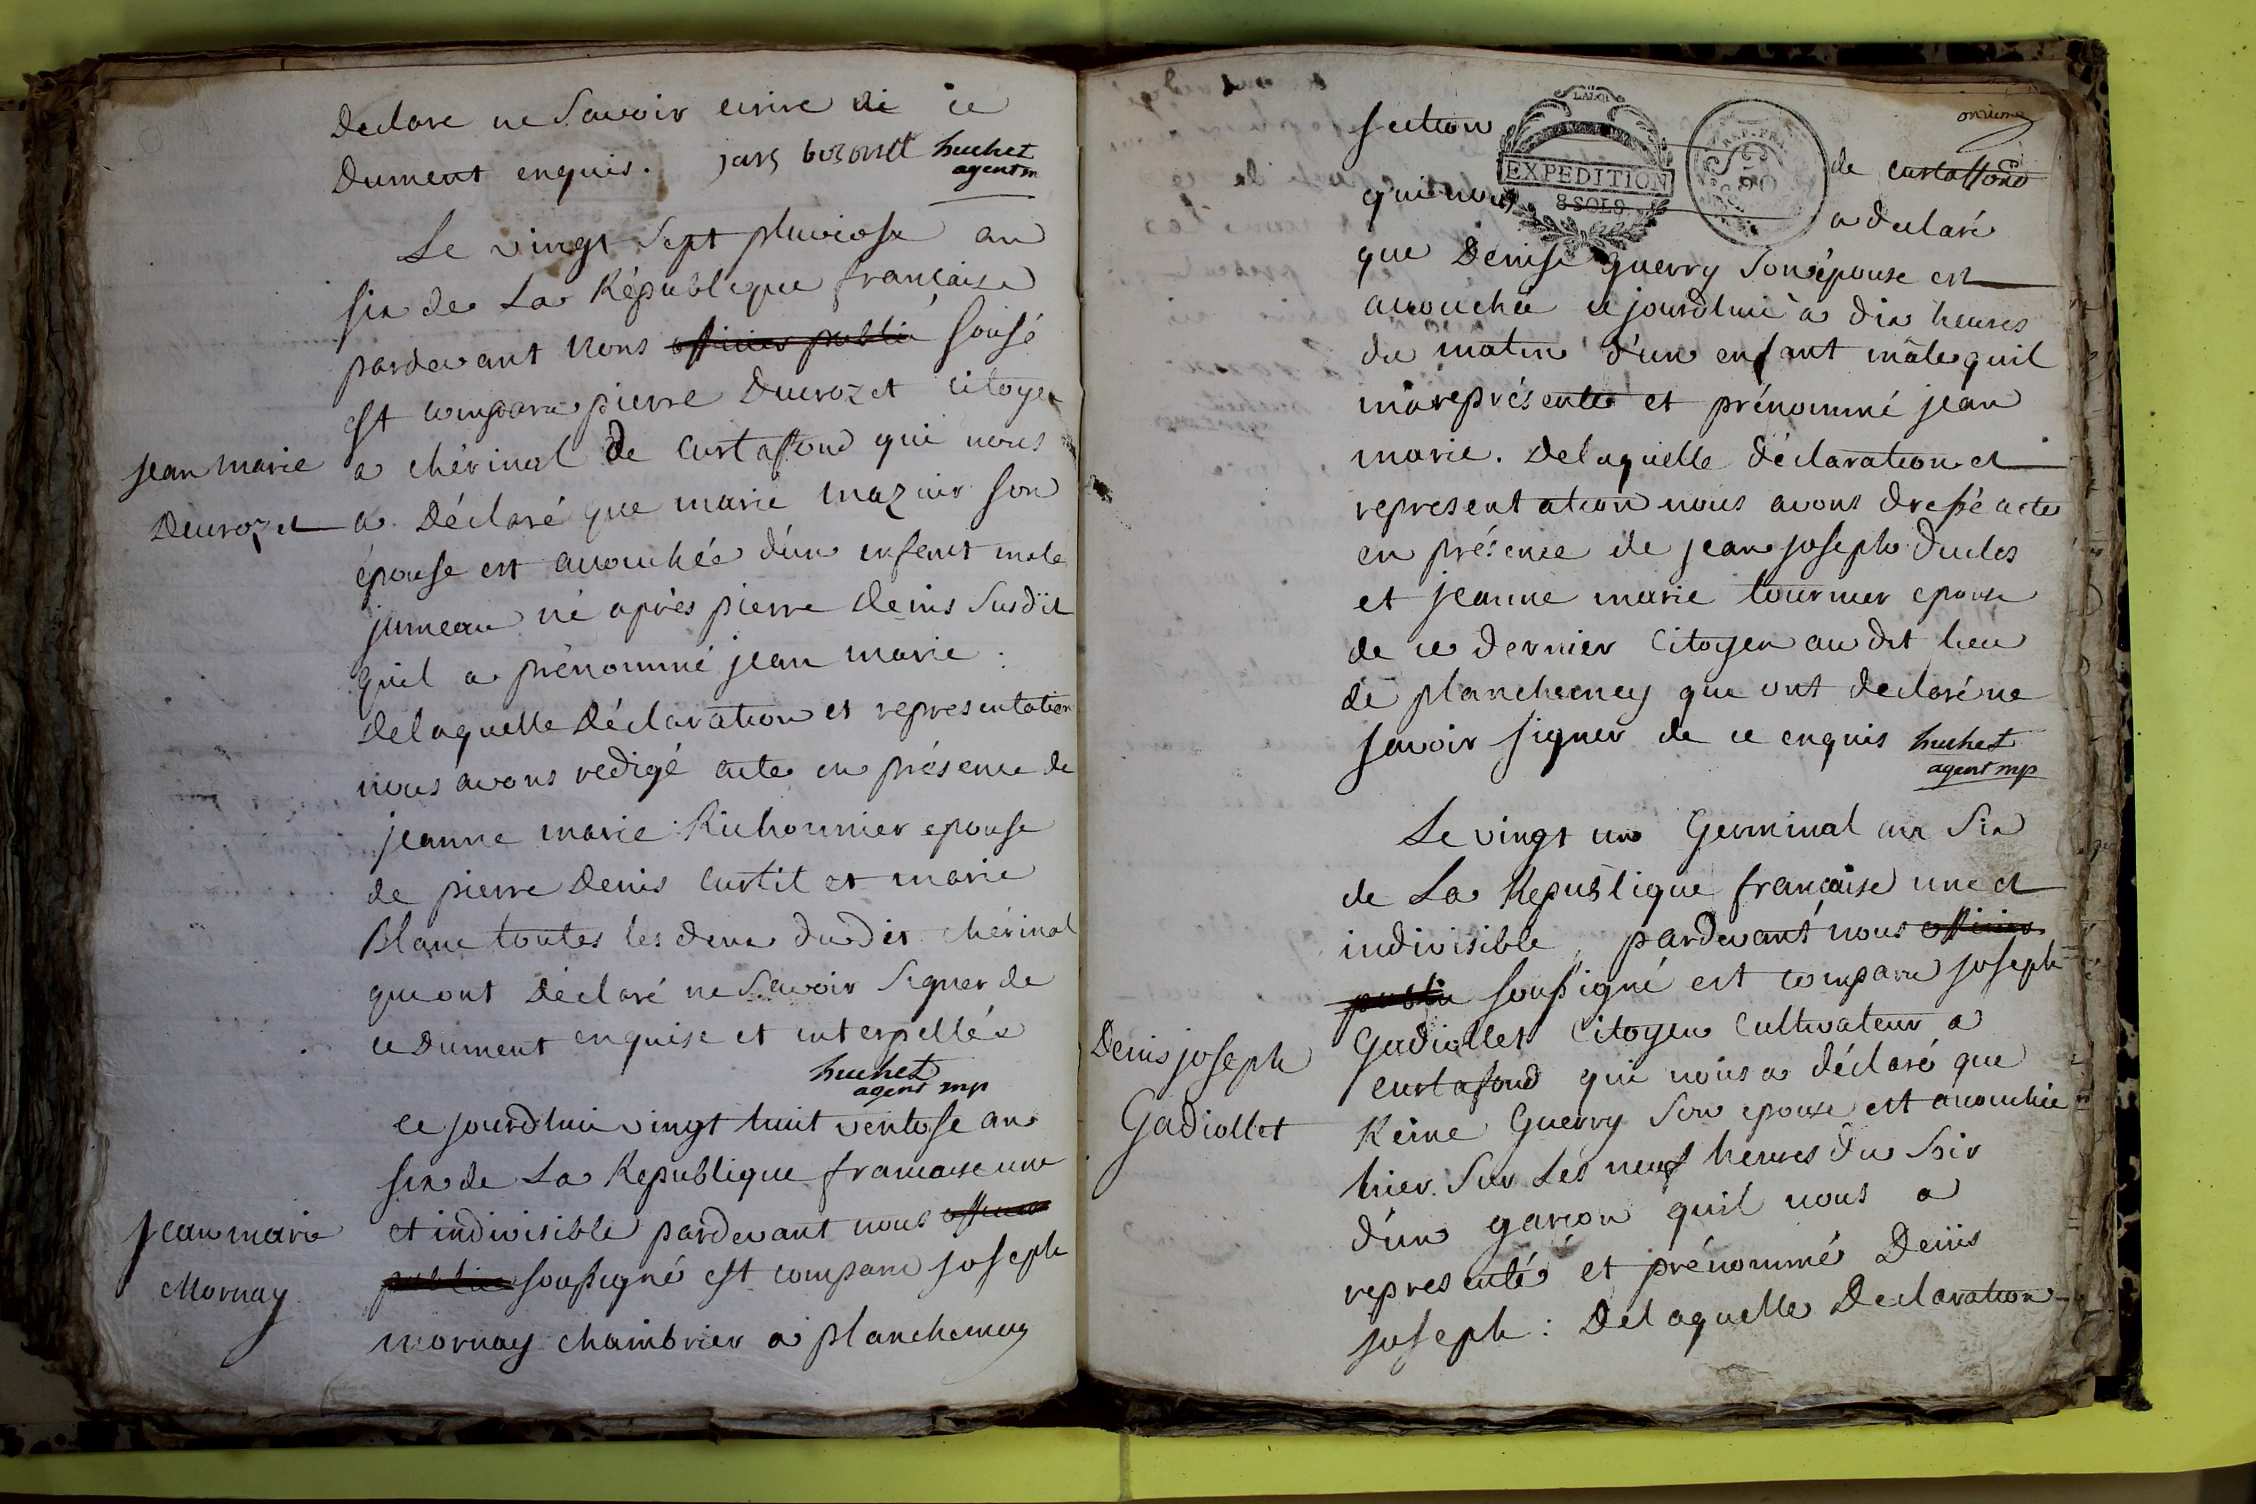 Declare ne Savoir ecrire de ce
Dument enquis. huchet
agent m
Le vingt Sept pluviose an
Six de La République française
pardevant Nous officier public sousé
est comparu pierre Ducrozet citoyen
jean marie
a chérinal de Curtafond qui nous
Ducrozet
a Déclaré que marie mazuir son
épouse est accouchée d'un enfent male
jumeau né après pierre Denis Susdit
quil a prénommé jean marie.
Delaquelle Déclaration et representation
nous avons redigé acte en présence de
jeanne marie Richonnier epouse
de pierre Denis Curtil et marie
Blanc toutes les deux dudit chérinal
que ont Déclaré ne Savoir Signer de
ce Dument enquise et interpellés
huchet
agent mp
Ce jourdhui vingt huit ventose an
six de La Republique francaise une
et indivisible pardevant nous officier
jean marie
public soussigné est comparu joseph
Mornay
mornay chambrier a planchemey
onzieme
LA LOI
EXPEDITION
8 SOLS
REP. FRA.
section de Curtaffond
qui nous a declaré
que Denise Guerry Son épouse est
accouchée cejourdhui à dix heures
du matin d'un enfant mâle quil
m'a représenté et prénommé jean
marie. Delaquelle déclaration et
representation nous avons dressé acte
en présence de jean joseph duclos
et jeanne marie tournier epouse
de ce dernier Citoyen au dit lieu
de planchemey que ont declaré ne
savoir signer de ce enquis huchet
agent mp
Le vingt un Germinal an Six
de La République française une et
indivisible, pardevant nous officier
public soussigné est comparu joseph
Denis joseph
Gadiollet Citoyen Cultivateur a
Curtafond qui nous a déclaré que
Gadiollet
Reine Guerry Son epouse est accouchée
hier Sur Les neuf heures du Soir
d'un garçon quil nous a
representé et prénommé Denis
joseph : Delaquelle Declaration